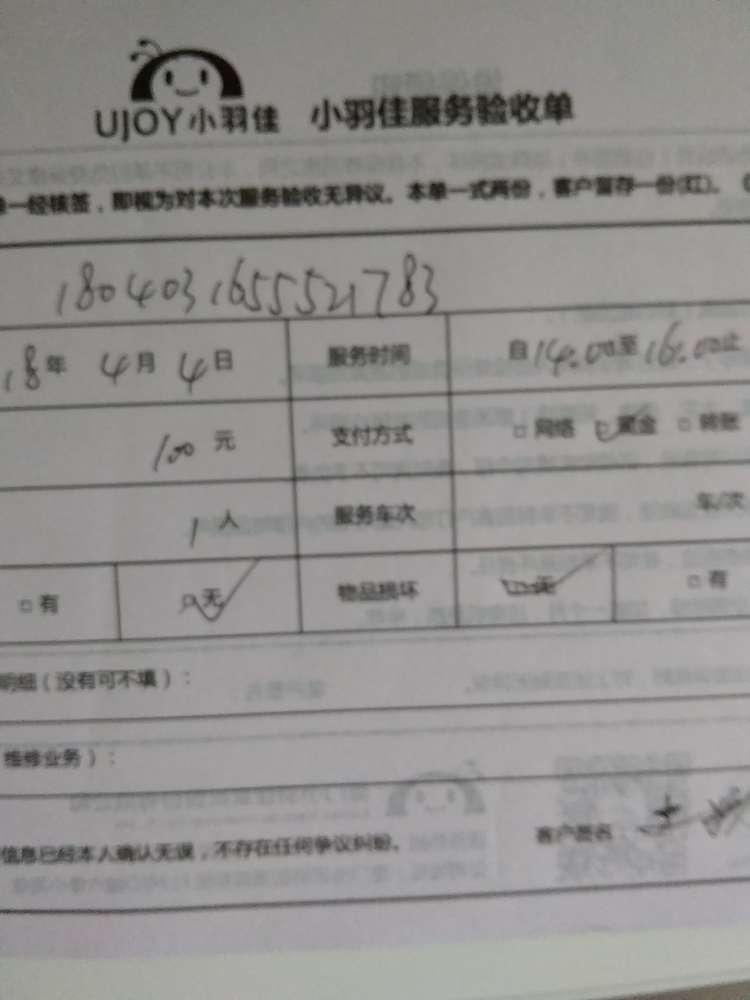 UJOY小羽佳 小羽佳服务验收单
一经核签，即视为对本次服务验收无异议。本单一式两份，客户留存一份(红)。
1804031655521783
18年 4月 4日 服务时间 自14:00至16:00止
100元 支付方式 □ 网络 ☑ 现金 □ 转账
1人 服务车次 车/次
□ 有 ☑ 无 物品损坏 ☑ 无 □ 有
明细（没有可不填）：
维修业务）：
信息已经本人确认无误，不存在任何争议纠纷。 客户签名